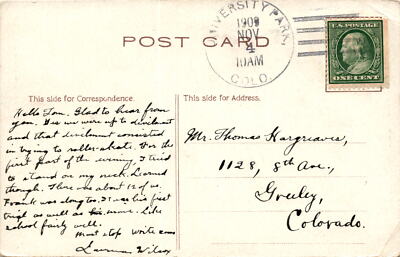 POST CARD
UNIVERSITY PARK,
1909
NOV
4
10AM
COLO.
U.S. POSTAGE
ONE CENT
This side for Correspondence.
This side for Address.
Hello Tom. Glad to hear from
you. Yes we were up to devilment
and that devilment consisted
in trying to roller-skate. For the
first part of the evening, I tried
to stand on my neck. Learned
though. There was about 12 of us.
Frank was along too. It was his first
trial as well as mine. Like
school fairly well.
Must stop write soon
Wilcox
Mr. Thomas Hargreaves,
1128, 8th Ave.,
Greeley,
Colorado.